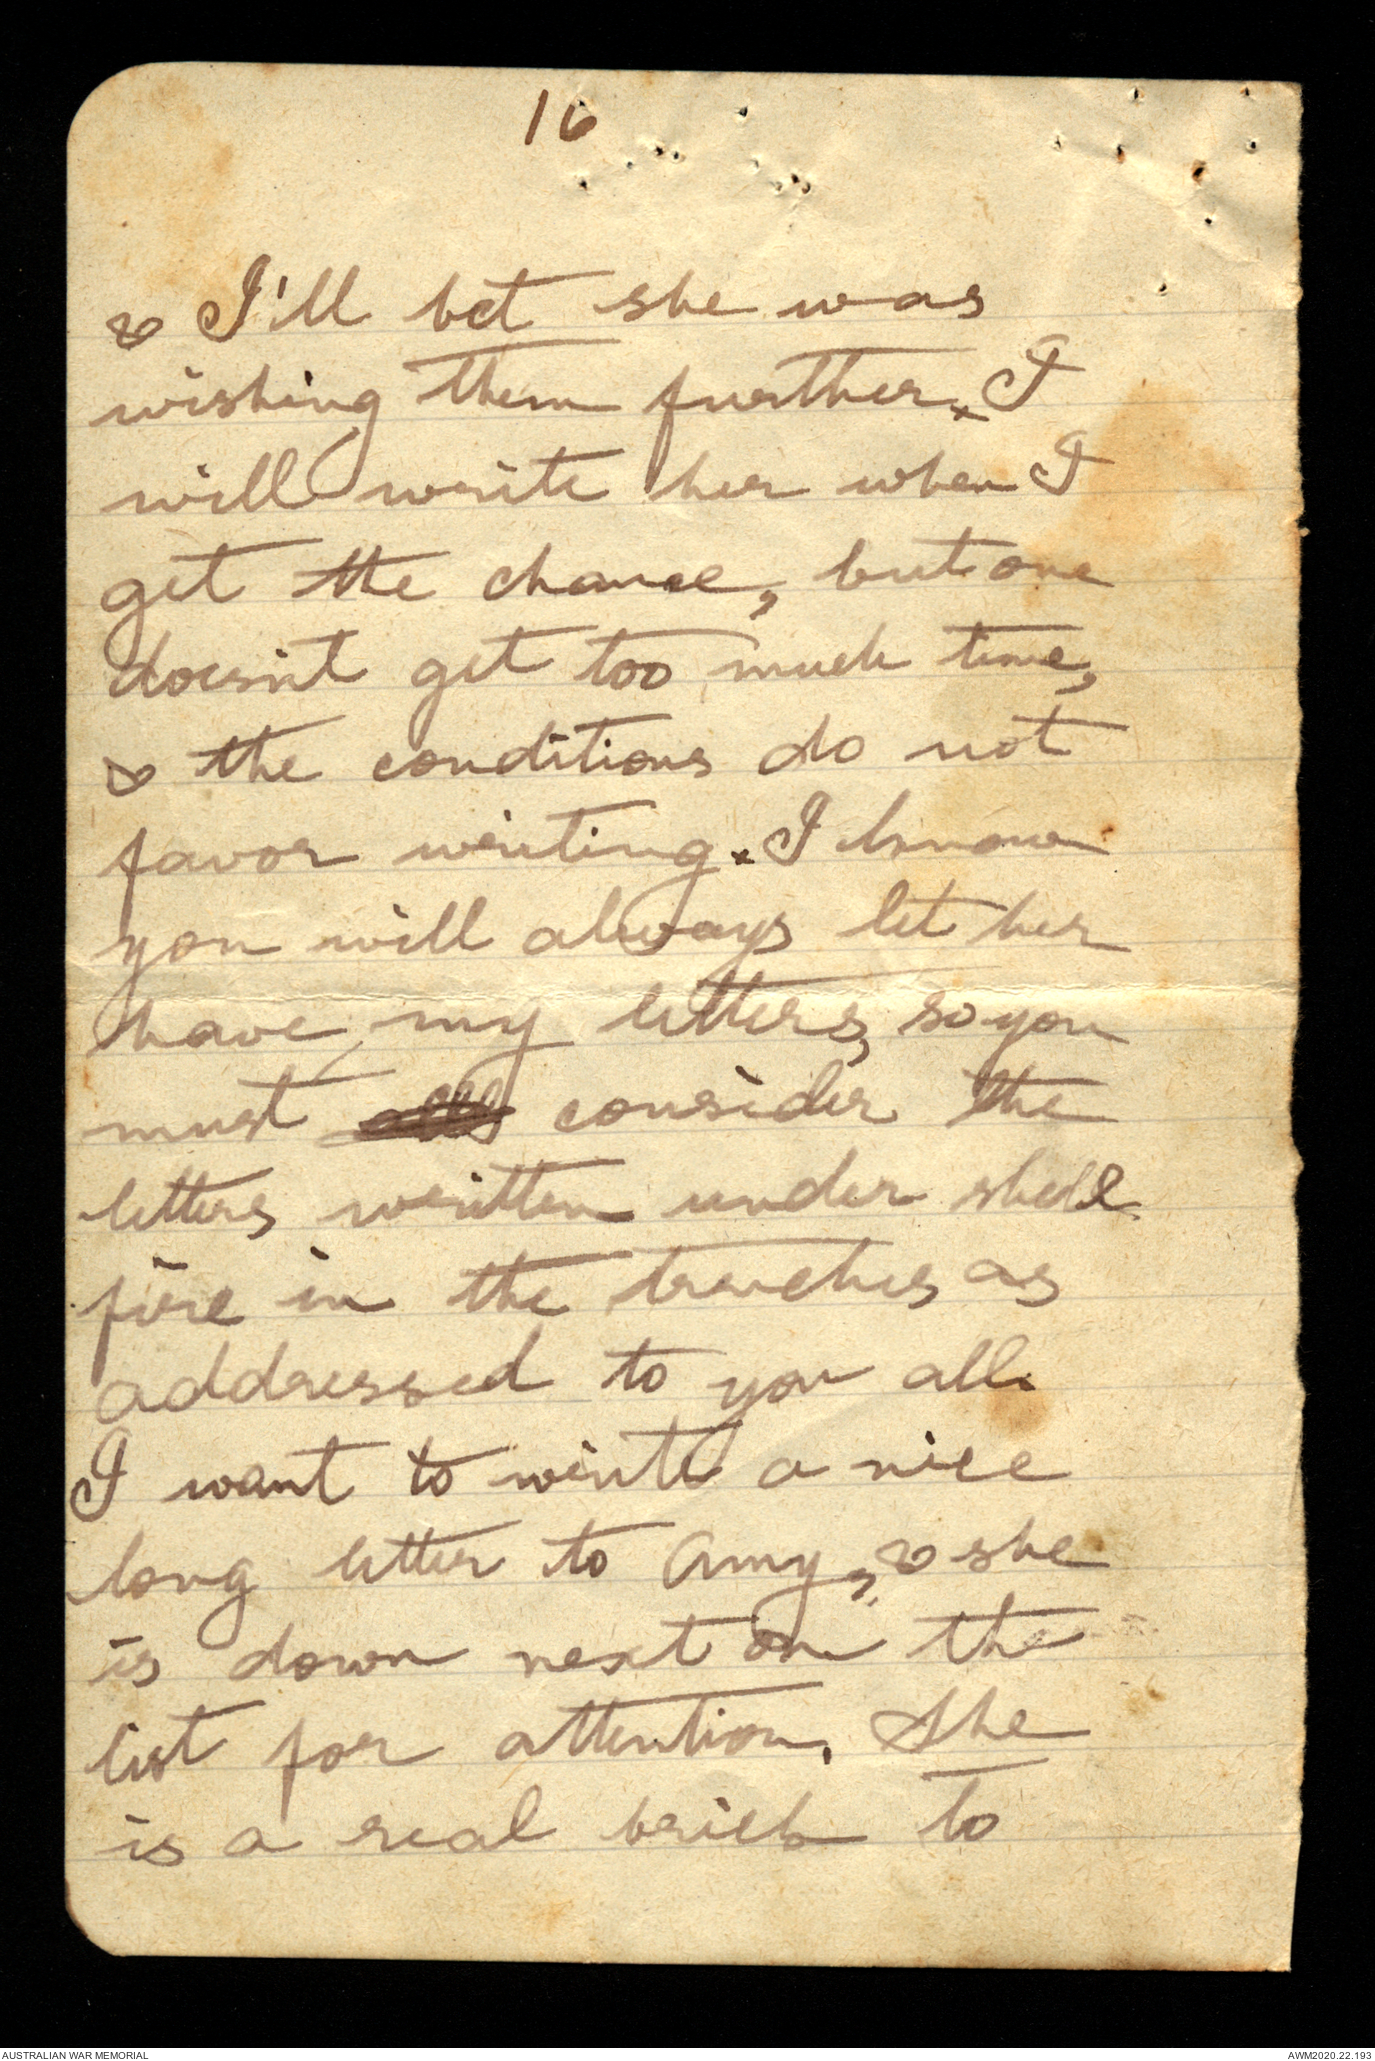 16
& I'll bet she was
wishing them further. I
will write her when I
get the chance, but one
doesn't get too much time,
& the conditions do not
favor writing. I know
you will always let her
have my letters, so you
must consider the
letters written under shell
fire in the trenches as
addressed to you all.
I want to write a nice
long letter to Amy, & she
is down next on the
list for attention. She
is a real brick to
AUSTRALIAN WAR MEMORIAL
AWM2020.22.193